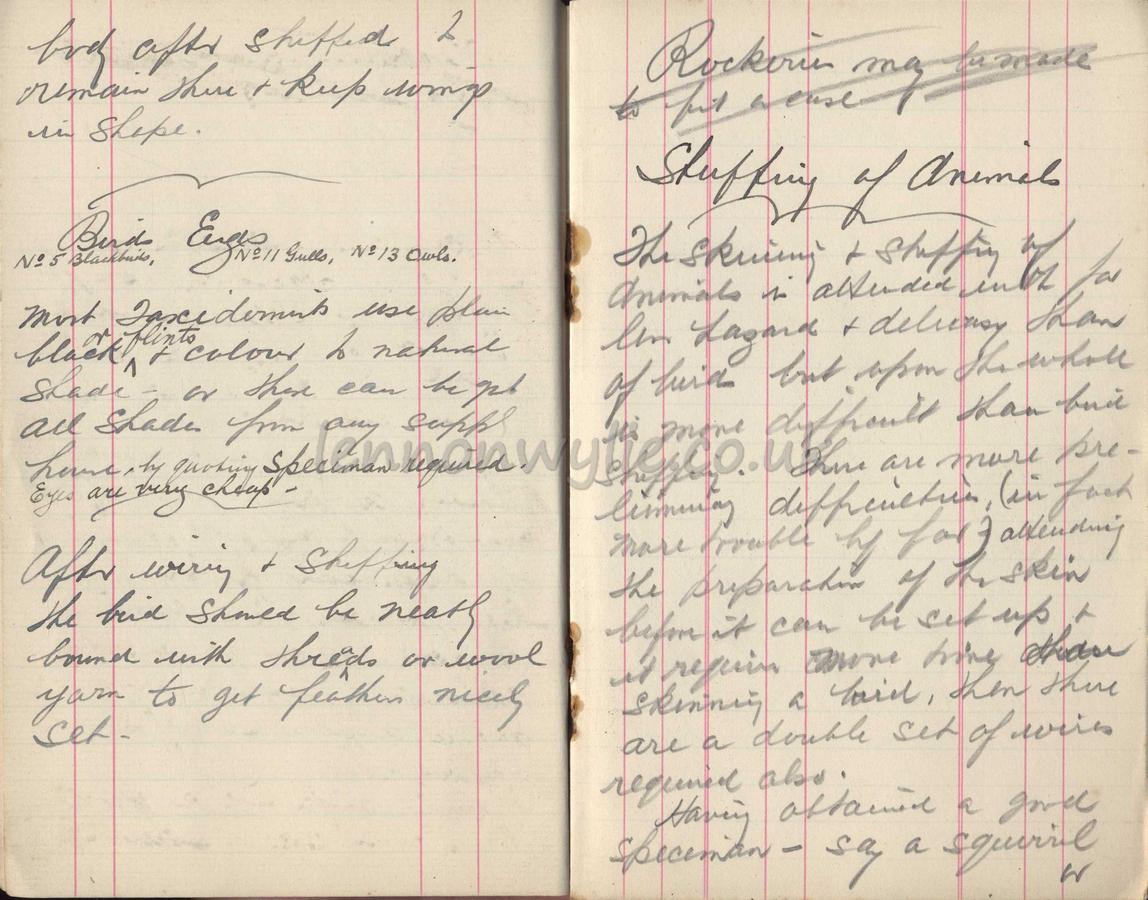 body after stuffed to
remain there & keep wings
in shape.
Birds Eyes
No 5 Blackbirds, No 11 Gulls, No 13 Owls.
Most Taxidermists use plain
or flints
black & colour to natural
shade - or there can be got
all shades from any supply
house, by quoting speciman required.
Eyes are very cheap -
After wiring & stuffing
the bird should be neatly
bound with threds or wool
yarn to get feathers nicely
set -
Rockeries may be made
to fit a case
Stuffing of Animals
The skinning & stuffing of
Animals is attended with far
less hazard & delicasy than
of birds but upon the whole
is more difficult than bird
stuffing. There are more pre-
liminary difficulties, (in fact
more trouble by far) attending
the preparation of the skin
before it can be set up &
it requires more time than
skinning a bird, then there
are a double set of wires
required also.
Having obtained a good
speciman - say a squirril
or
lennonwylie.co.uk